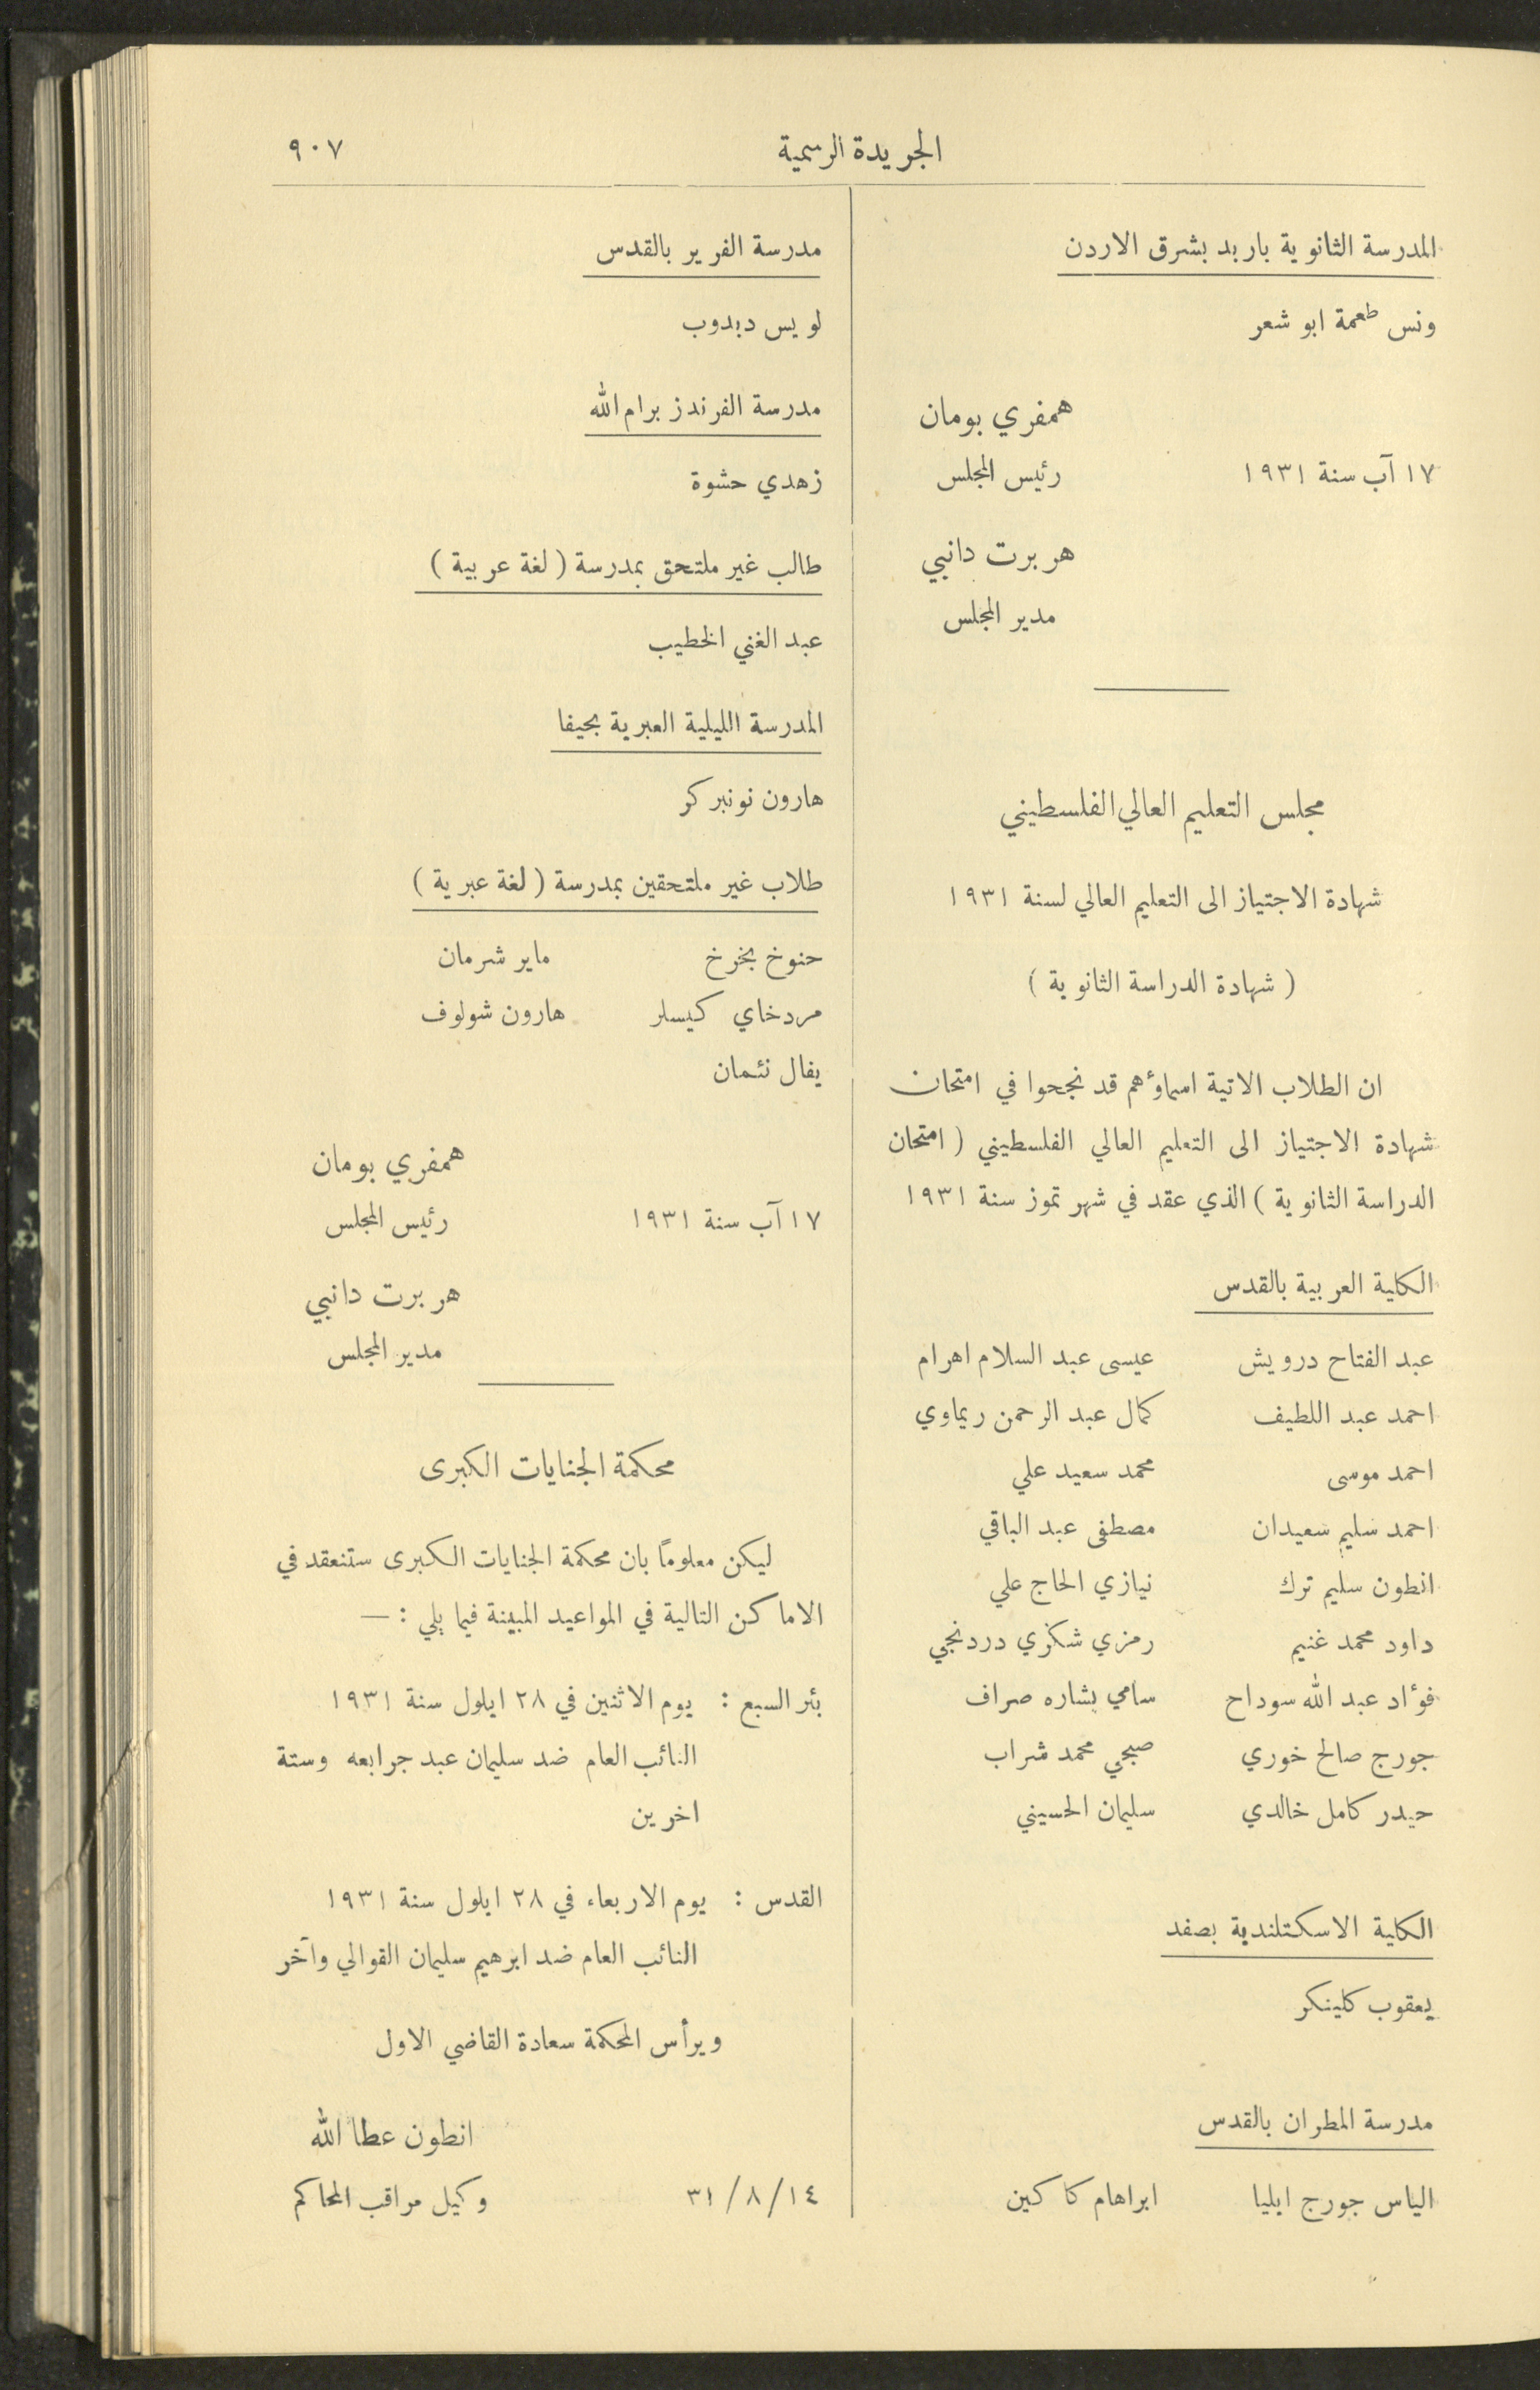 الجريدة الرسمية
٩٠٧
المدرسة الثانوية باربد بشرق الاردن
ونس طعمة ابو شعر
همفري بومان
١٧ آب سنة ١٩٣١ رئيس المجلس
هربرت دانبي
مدير المجلس
مجلس التعليم العالي الفلسطيني
شهادة الاجتياز الى التعليم العالي لسنة ١٩٣١
( شهادة الدراسة الثانوية )
ان الطلاب الاتية اسماؤهم قد نجحوا في امتحان
شهادة الاجتياز الى التعليم العالي الفلسطيني ( امتحان
الدراسة الثانوية ) الذي عقد في شهر تموز سنة ١٩٣١
الكلية العربية بالقدس
عبد الفتاح درويش عيسى عبد السلام اهرام
احمد عبد اللطيف كمال عبد الرحمن ريماوي
احمد موسى محمد سعيد علي
احمد سليم سعيدان مصطفى عبد الباقي
انطون سليم ترك نيازي الحاج علي
داود محمد غنيم رمزي شكري دردنجي
فؤاد عبد الله سوداح سامي بشاره صراف
جورج صالح خوري صبحي محمد شراب
حيدر كامل خالدي سليمان الحسيني
الكلية الاسكتلندية بصفد
يعقوب كلينكر
مدرسة المطران بالقدس
الياس جورج ايليا ابراهام كاكين
مدرسة الفرير بالقدس
لويس دبدوب
مدرسة الفرندز برام الله
زهدي حشوة
طالب غير ملتحق بمدرسة ( لغة عربية )
عبد الغني الخطيب
المدرسة الليلية العبرية بحيفا
هارون نونبركر
طلاب غير ملتحقين بمدرسة ( لغة عبرية )
حنوخ بخرخ ماير شرمان
مردخاي كيسلر هارون شولوف
يفال نئمان
همفري بومان
١٧ آب سنة ١٩٣١ رئيس المجلس
هربرت دانبي
مدير المجلس
محكمة الجنايات الكبرى
ليكن معلوماً بان محكمة الجنايات الكبرى ستنعقد في
الاماكن التالية في المواعيد المبينة فيما يلي : —
بئر السبع : يوم الاثنين في ٢٨ ايلول سنة ١٩٣١
النائب العام ضد سليمان عبد جرابعه وستة
اخرين
القدس : يوم الاربعاء في ٢٨ ايلول سنة ١٩٣١
النائب العام ضد ابرهيم سليمان القوالي وآخر
ويرأس المحكمة سعادة القاضي الاول
انطون عطا الله
٣١/٨/١٤ وكيل مراقب المحاكم